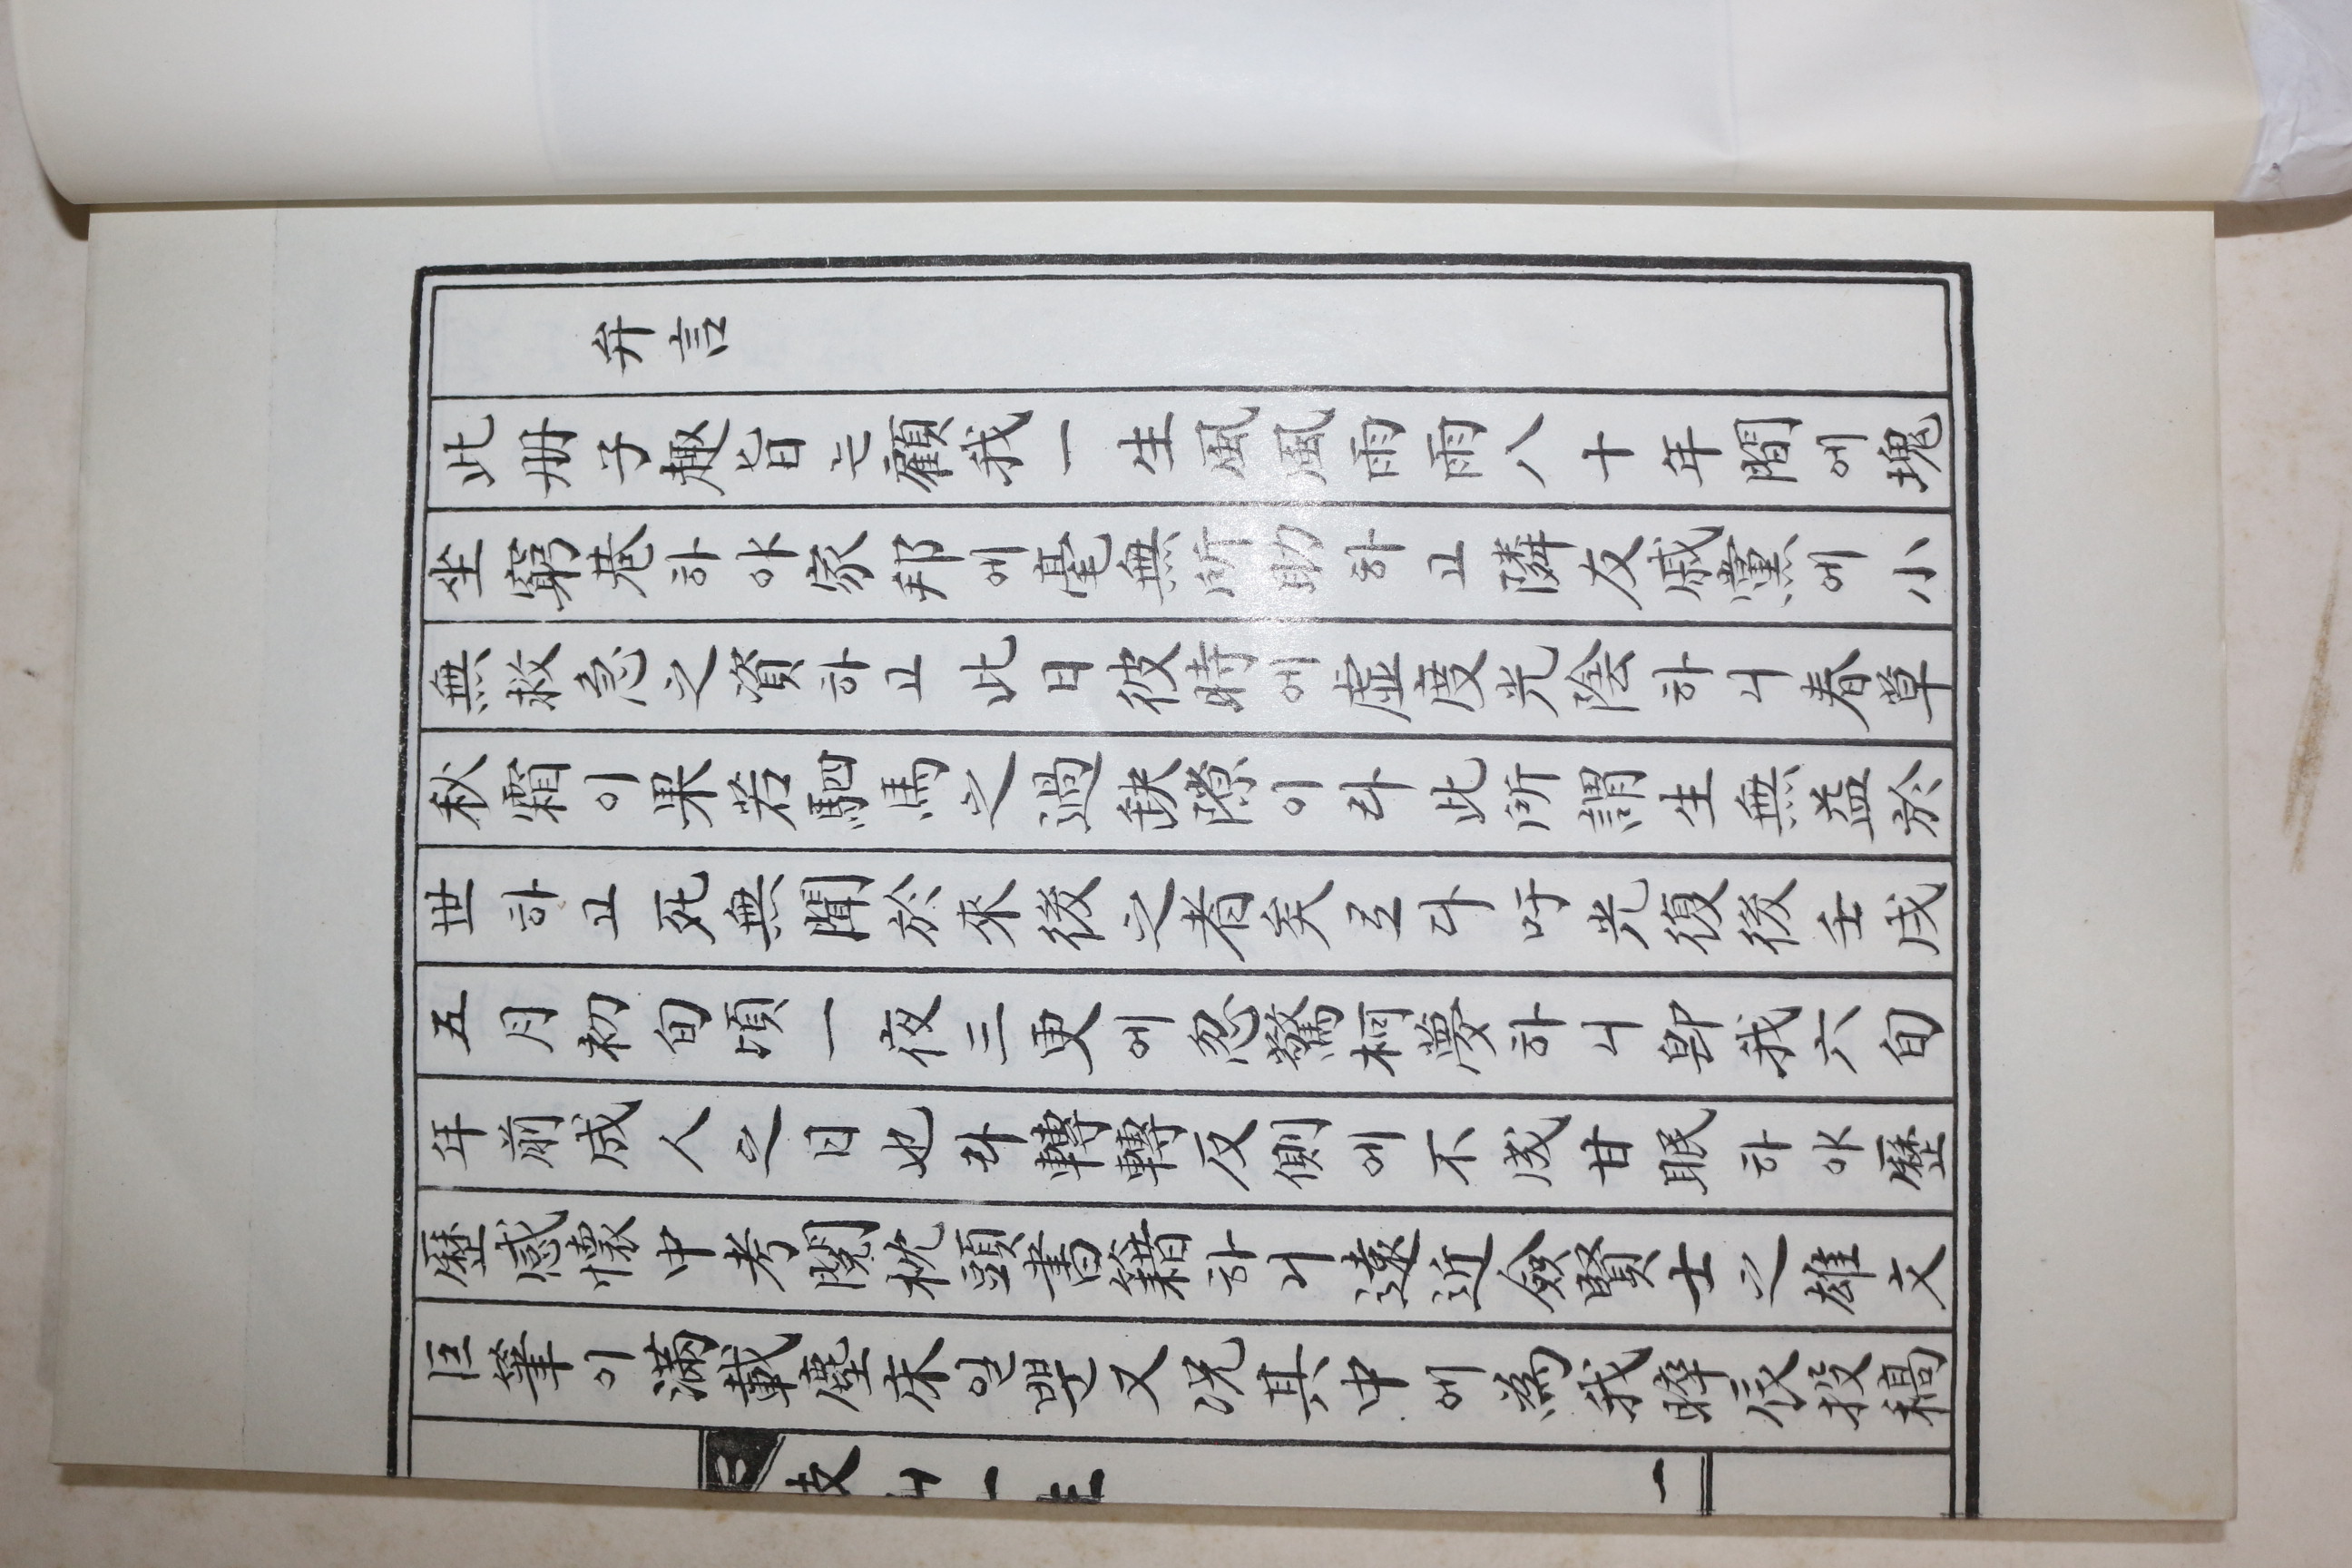 弁言
此册子趣旨는顧我一生風風雨雨八十年間에塊
坐窮巷하야家邦에毫無所助하고隣友戚黨에小
無救急之資하고此日彼時에虛度光陰하니春草
秋霜이果若駟馬之過缺隙이라此所謂生無益於
世하고死無聞於來後之者矣로다吁光復後壬戌
五月初旬頃一夜三更에忽驚柯夢하니卽我六旬
年前成人之日也라轉轉反側에不成甘眠하야歷
歷感懷中考閱枕頭書籍하니遠近僉賢士之雄文
巨筆이滿載塵床일뿐又况其中에為我晬辰投稿
岐山一生
一